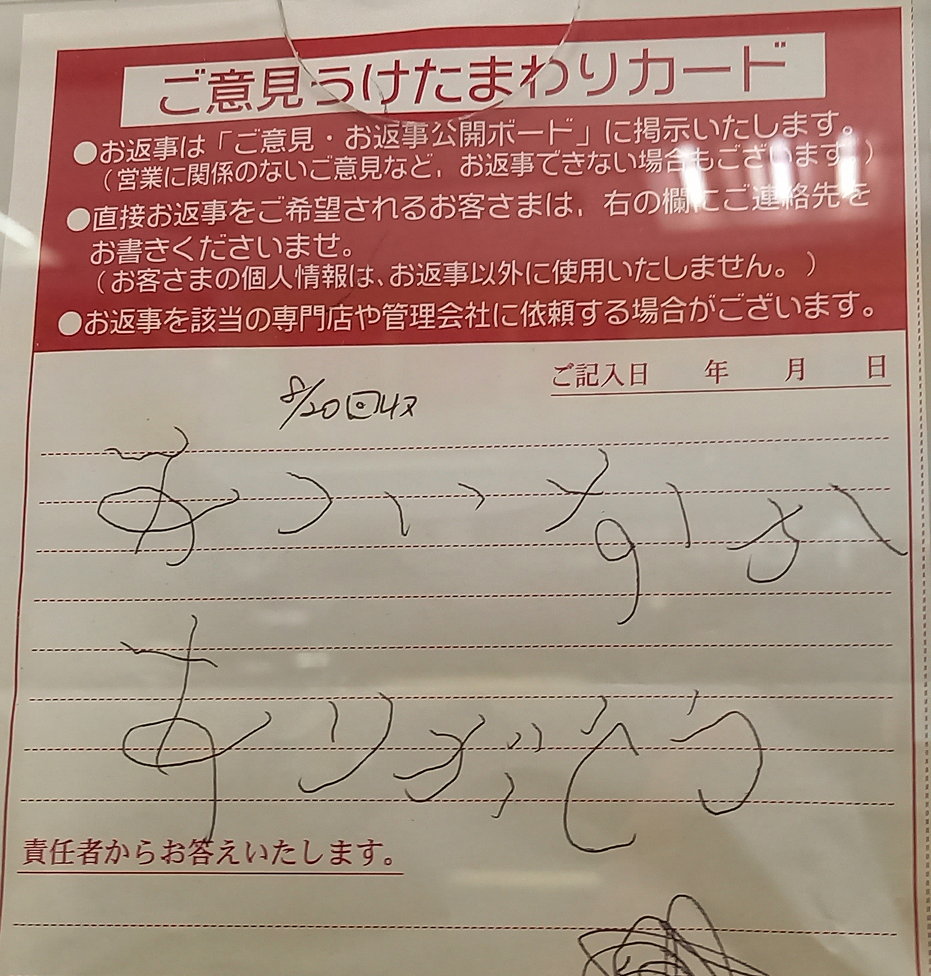 ご意見うけたまわりカード
●お返事は「ご意見・お返事公開ボード」に掲示いたします。
（営業に関係のないご意見など、お返事できない場合もございます。）
●直接お返事をご希望されるお客さまは、右の欄にご連絡先を
お書きくださいませ。
（お客さまの個人情報は、お返事以外に使用いたしません。）
●お返事を該当の専門店や管理会社に依頼する場合がございます。
ご記入日 年 月 日
8/20回収
あついな
ありがとう
責任者からお答えいたします。